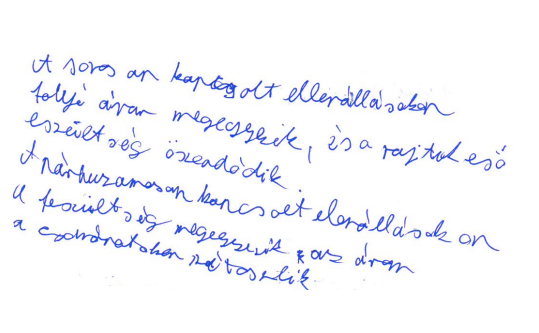 A soros an kapcsolt ellenállásokon
folyó áram megegyezik, és a rajtuk eső
eszültség öszeadódik.
A párhuzamosan kapcsolt elenállásokon
a feszültség megegyezik, az áram
a csomópontokban szétoszlik